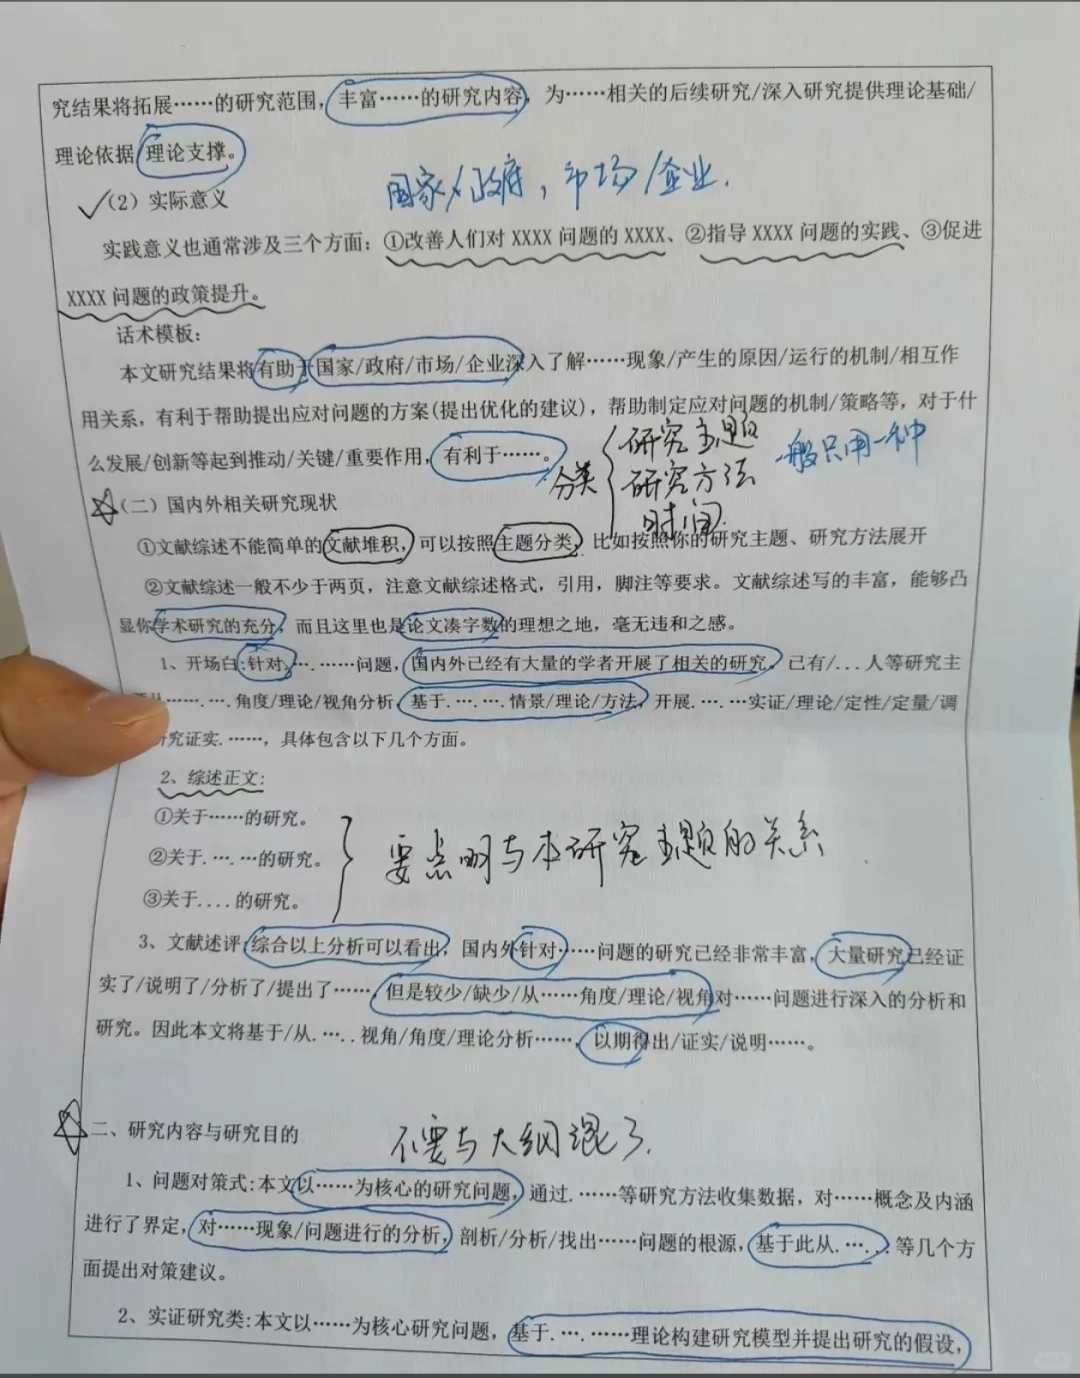 究结果将拓展……的研究范围，丰富……的研究内容，为……相关的后续研究/深入研究提供理论基础/
理论依据 理论支撑。
国家/政府，市场/企业.
（2）实际意义
实践意义也通常涉及三个方面：①改善人们对 XXXX 问题的 XXXX、②指导 XXXX 问题的实践、③促进
XXXX 问题的政策提升。
话术模板：
本文研究结果将有助于国家/政府/市场/企业深入了解……现象/产生的原因/运行的机制/相互作
用关系，有利于帮助提出应对问题的方案(提出优化的建议)，帮助制定应对问题的机制/策略等，对于什
么发展/创新等起到推动/关键/重要作用，有利于……。
分类
研究主题
研究方法
时间
一般只用一种
（二）国内外相关研究现状
①文献综述不能简单的文献堆积，可以按照主题分类，比如按照你的研究主题、研究方法展开
②文献综述一般不少于两页，注意文献综述格式，引用，脚注等要求。文献综述写的丰富，能够凸
显你学术研究的充分，而且这里也是论文凑字数的理想之地，毫无违和之感。
1、开场白:针对.…. ……问题，国内外已经有大量的学者开展了相关的研究。已有/... 人等研究主
……. …. 角度/理论/视角分析，基于. …. …. 情景/理论/方法，开展. …. …实证/理论/定性/定量/调
研究证实. ……，具体包含以下几个方面。
2、综述正文:
①关于……的研究。
②关于. …. …的研究。
③关于.... 的研究。
要点明与本研究主题的关系
3、文献述评:综合以上分析可以看出，国内外针对……问题的研究已经非常丰富，大量研究已经证
实了/说明了/分析了/提出了……，但是较少/缺少/从……角度/理论/视角对……问题进行深入的分析和
研究。因此本文将基于/从. …. . 视角/角度/理论分析……，以期得出/证实/说明……。
二、研究内容与研究目的
不要与大纲混了.
1、问题对策式:本文以……为核心的研究问题，通过. ……等研究方法收集数据，对……概念及内涵
进行了界定，对……现象/问题进行的分析，剖析/分析/找出……问题的根源，基于此从. …. . . 等几个方
面提出对策建议。
2、实证研究类:本文以……为核心研究问题，基于. …. ……理论构建研究模型并提出研究的假设，